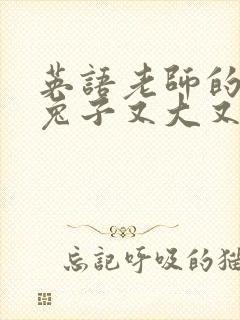 英語老師的
兔子又大又
忘記呼吸的猫